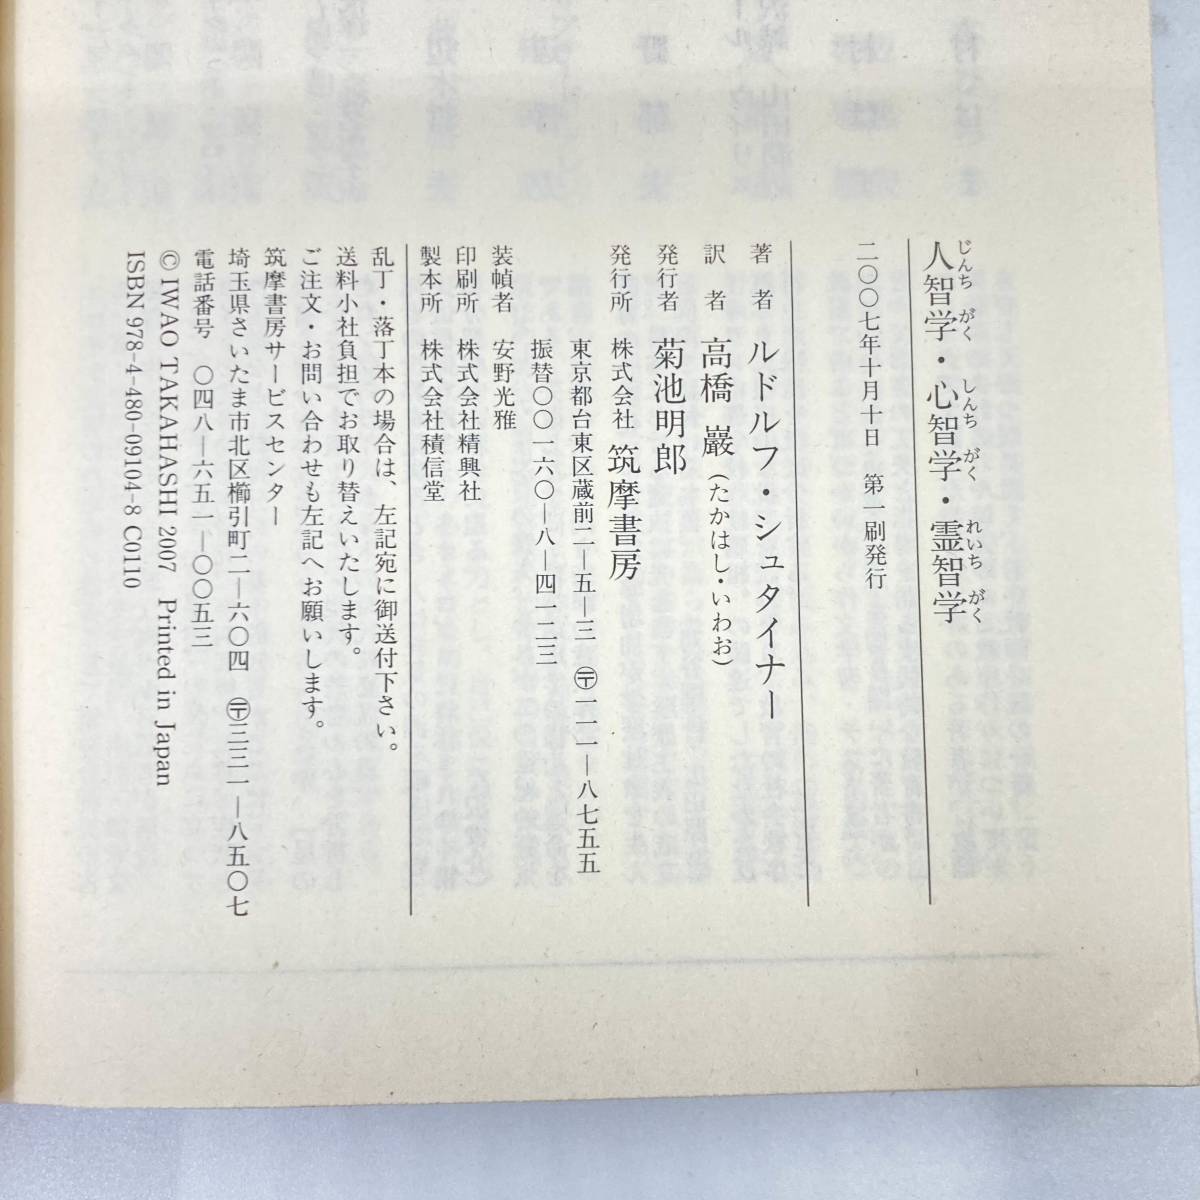 人智学・心智学・霊智学
じんち がく しんち がく れいち がく
二〇〇七年十月十日 第一刷発行
著者 ルドルフ・シュタイナー
訳者 高橋 巖（たかはし・いわお）
発行者 菊池明郎
発行所 株式会社 筑摩書房
東京都台東区蔵前二―五―三 〒一一一―八七五五
振替〇〇一六〇―八―四一二三
装幀者 安野光雅
印刷所 株式会社精興社
製本所 株式会社積信堂
乱丁・落丁本の場合は、左記宛に御送付下さい。
送料小社負担でお取り替えいたします。
ご注文・お問い合わせも左記へお願いします。
筑摩書房サービスセンター
埼玉県さいたま市北区櫛引町二―六〇四 〒三三一―八五〇七
電話番号 〇四八―六五一―〇〇五三
© IWAO TAKAHASHI 2007 Printed in Japan
ISBN 978-4-480-09104-8 C0110